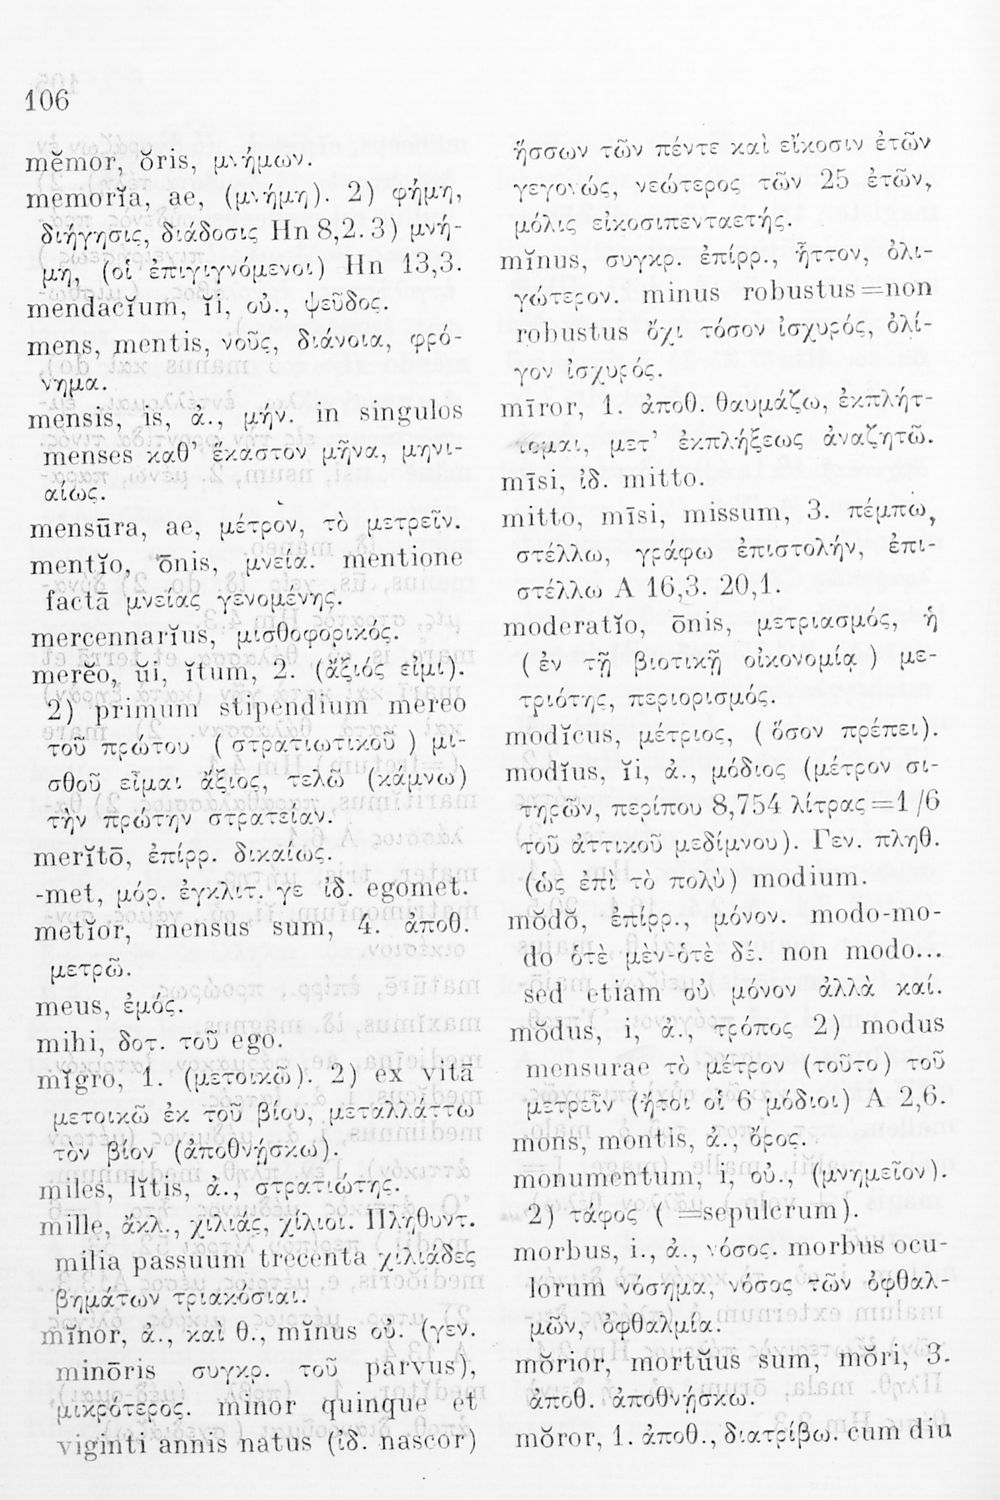 106
mĕmor, ŏris, μνήμων.
memorĭa, ae, (μνήμη). 2) φήμη,
διήγησις, διάδοσις Hn 8,2. 3) μνή-
μη, (οἱ ἐπιγιγνόμενοι) Hn 13,3.
mendacĭum, ĭi, οὐ., ψεῦδος.
mens, mentis, νοῦς, διάνοια, φρό-
νημα.
mensis, is, ἀ., μήν. in singulos
menses καθ’ ἕκαστον μῆνα, μηνι-
αίως.
mensūra, ae, μέτρον, τὸ μετρεῖν.
mentĭo, ōnis, μνεία. mentione
factā μνείας γενομένης.
mercennarĭus, μισθοφορικός.
merĕo, ŭi, ĭtum, 2. (ἄξιός εἰμι).
2) primum stipendium mereo
τοῦ πρώτου ( στρατιωτικοῦ ) μι-
σθοῦ εἶμαι ἄξιος, τελῶ (κάμνω)
τὴν πρώτην στρατείαν.
merĭtō, ἐπίρρ. δικαίως.
-met, μόρ. ἐγκλιτ. γε ἰδ. egomet.
metĭor, mensus sum, 4. ἀποθ.
μετρῶ.
meus, ἐμός.
mihi, δοτ. τοῦ ego.
mĭgro, 1. (μετοικῶ). 2) ex vitā
μετοικῶ ἐκ τοῦ βίου, μεταλλάττω
τὸν βίον (ἀποθνῄσκω).
miles, lĭtis, ἀ., στρατιώτης.
mille, ἄκλ., χιλιάς, χίλιοι. Πληθυντ.
milia passuum trecenta χιλιάδες
βημάτων τριακόσιαι.
mĭnor, ἀ., καὶ θ., mĭnus οὐ. (γεν.
minōris συγκρ. τοῦ parvus),
μικρότερος. minor quinque et
viginti annis natus (ἰδ. nascor)
ἥσσων τῶν πέντε καὶ εἴκοσιν ἐτῶν
γεγονώς, νεώτερος τῶν 25 ἐτῶν,
μόλις εἰκοσιπενταετής.
mĭnus, συγκρ. ἐπίρρ., ἧττον, ὀλι-
γώτερον. minus robustus=non
robustus ὄχι τόσον ἰσχυρός, ὀλί-
γον ἰσχυρός.
mīror, 1. ἀποθ. θαυμάζω, ἐκπλήτ-
τομαι, μετ’ ἐκπλήξεως ἀναζητῶ.
mīsi, ἰδ. mitto.
mitto, mīsi, missum, 3. πέμπω,
στέλλω, γράφω ἐπιστολήν, ἐπι-
στέλλω A 16,3. 20,1.
moderatĭo, ōnis, μετριασμός, ἡ
( ἐν τῇ βιοτικῇ οἰκονομίᾳ ) με-
τριότης, περιορισμός.
modĭcus, μέτριος, ( ὅσον πρέπει).
modĭus, ĭi, ἀ., μόδιος (μέτρον σι-
τηρῶν, περίπου 8,754 λίτρας=1/6
τοῦ ἀττικοῦ μεδίμνου). Γεν. πληθ.
(ὡς ἐπὶ τὸ πολὺ) modium.
mŏdŏ, ἐπίρρ., μόνον. modo-mo-
do ὁτὲ μὲν-ὁτὲ δέ. non modo...
sed etiam οὐ μόνον ἀλλὰ καί.
mŏdus, i, ἀ., τρόπος 2) modus
mensurae τὸ μέτρον (τοῦτο) τοῦ
μετρεῖν (ἤτοι οἱ 6 μόδιοι) A 2,6.
mons, montis, ἀ., ὄρος.
monumentum, i, οὐ., (μνημεῖον).
2) τάφος ( =sepulcrum).
morbus, i., ἀ., νόσος. morbus ocu-
lorum νόσημα, νόσος τῶν ὀφθαλ-
μῶν, ὀφθαλμία.
mŏrior, mortŭus sum, mŏri, 3.
ἀποθ. ἀποθνῄσκω.
mŏror, 1. ἀποθ., διατρίβω. cum diu